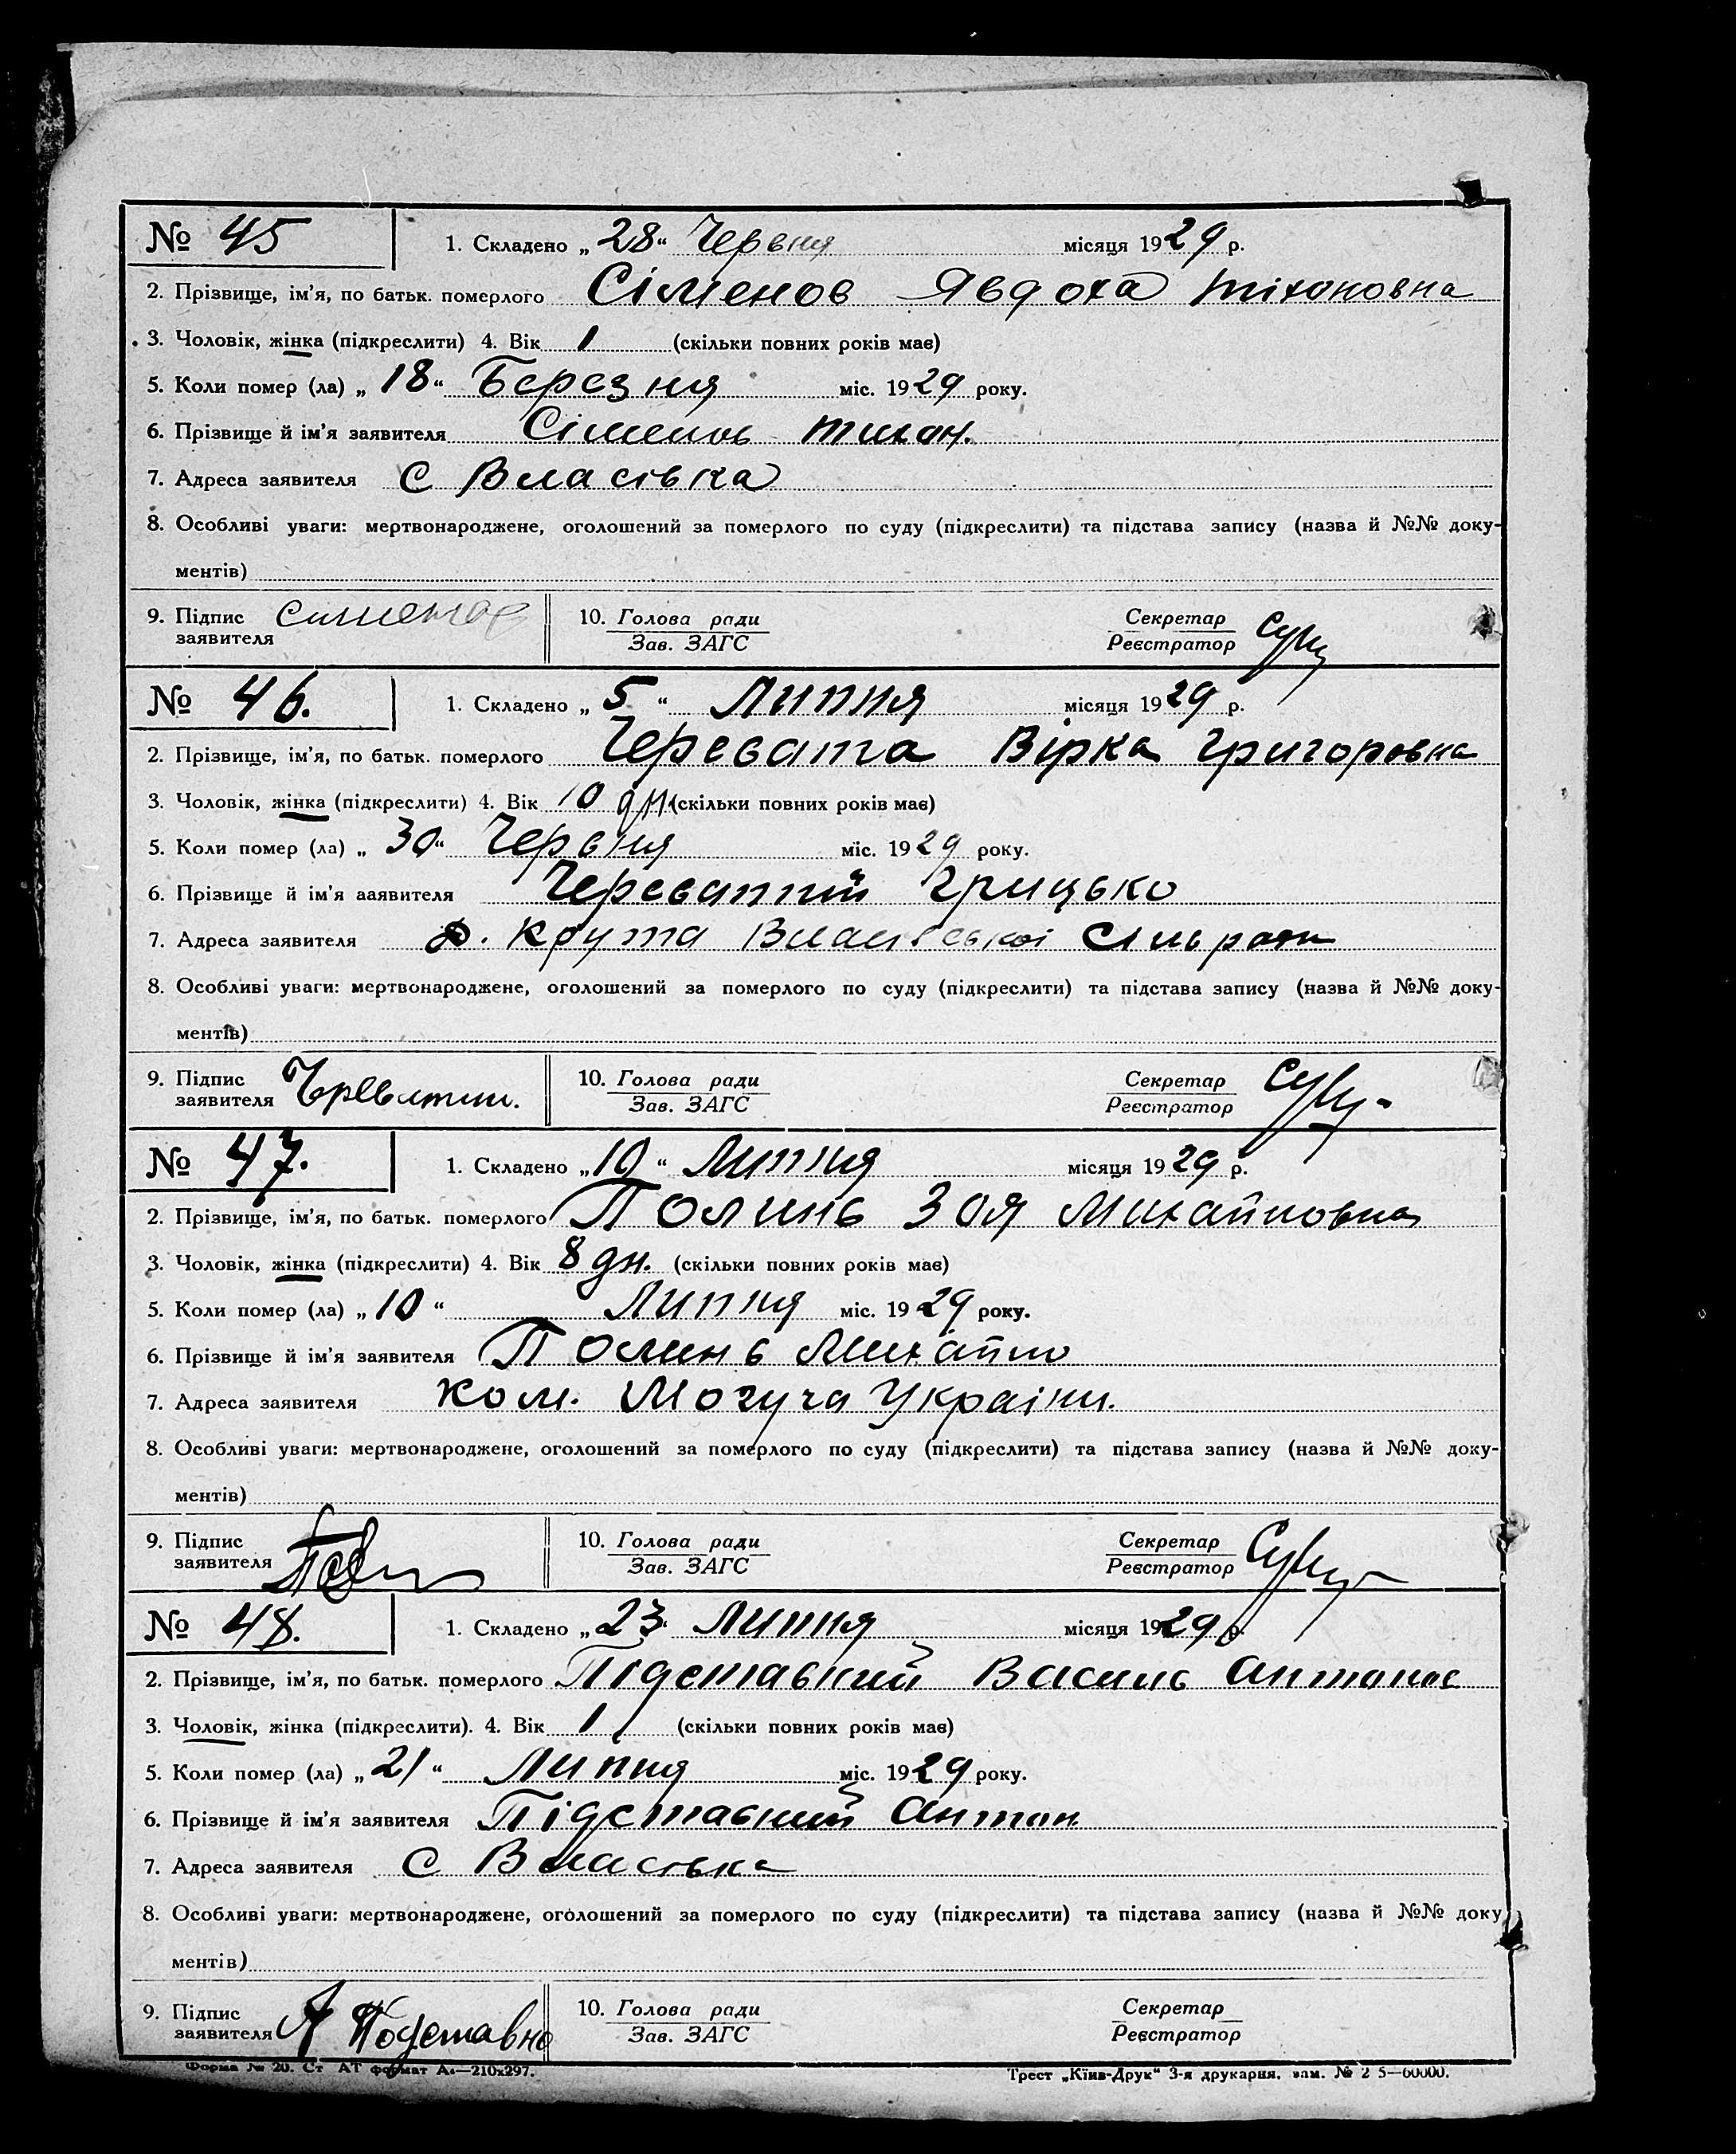 № 45 1. Складено „28“ Червня місяця 1929 р.
2. Прізвище, ім'я, по батьк. померлого Сіменов Явдоха Тіхоновна
3. Чоловік, жінка (підкреслити) 4. Вік 1 (скільки повних років має)
5. Коли помер (ла) „18“ Березня міс. 1929 року.
6. Прізвище й ім'я заявителя Сіменов Тихон.
7. Адреса заявителя С Власівка
8. Особливі уваги: мертвонароджене, оголошений за померлого по суду (підкреслити) та підстава запису (назва й №№ доку-
ментів)
9. Підпис заявителя Сименов 10. Голова ради Секретар
Зав. ЗАГС Реєстратор
№ 46. 1. Складено „5“ Липня місяця 1929 р.
2. Прізвище, ім'я, по батьк. померлого Черевата Вірка Григоровна
3. Чоловік, жінка (підкреслити) 4. Вік 10 дн. (скільки повних років має)
5. Коли помер (ла) „30“ Червня міс. 1929 року.
6. Прізвище й ім'я ааявителя Череватий Грицько
7. Адреса заявителя х. Крута Власівської сільради
8. Особливі уваги: мертвонароджене, оголошений за померлого по суду (підкреслити) та підстава запису (назва й №№ доку-
ментів)
9. Підпис заявителя 10. Голова ради Секретар
Зав. ЗАГС Реєстратор
№ 47. 1. Складено „10“ Липня місяця 1929 р.
2. Прізвище, ім'я, по батьк. померлого Полинь Зоя Михайловна
3. Чоловік, жінка (підкреслити) 4. Вік 8 дн. (скільки повних років має)
5. Коли помер (ла) „10“ Липня міс. 1929 року.
6. Прізвище й ім'я заявителя Полинь Михайло
7. Адреса заявителя Ком. Могуча України.
8. Особливі уваги: мертвонароджене, оголошений за померлого по суду (підкреслити) та підстава запису (назва й №№ доку-
ментів)
9. Підпис заявителя 10. Голова ради Секретар
Зав. ЗАГС Реєстратор
№ 48. 1. Складено „23“ Липня місяця 1929 р.
2. Прізвище, ім'я, по батьк. померлого Підставний Василь Антонов
3. Чоловік, жінка (підкреслити). 4. Вік 1 (скільки повних років має)
5. Коли помер (ла) „21“ Липня міс. 1929 року.
6. Прізвище й ім'я заявителя Підставний Антон
7. Адреса заявителя С Власівка
8. Особливі уваги: мертвонароджене, оголошений за померлого по суду (підкреслити) та підстава запису (назва й №№ доку
ментів)
9. Підпис заявителя А Подставно 10. Голова ради Секретар
Зав. ЗАГС Реєстратор
Форма № 20. Ст АТ формат А4—210x297. Трест „Київ-Друк“ 3-я друкарня, зам. № 2 5—60000.